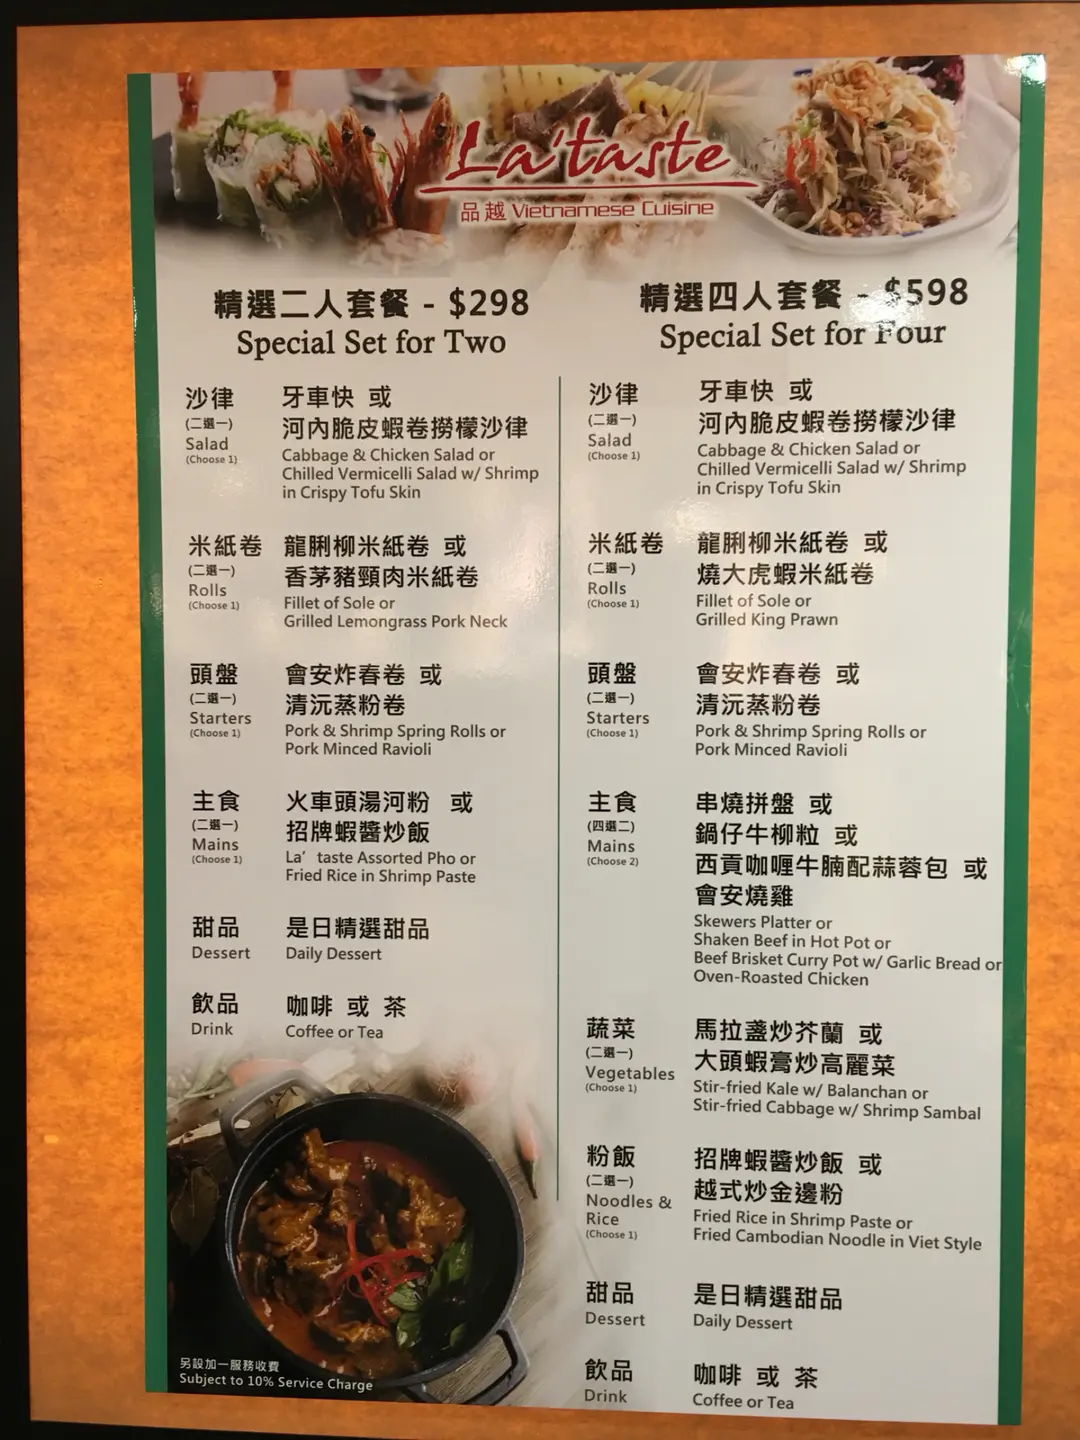 La'taste
品越 Vietnamese Cuisine
精選二人套餐 - $298
Special Set for Two
沙律
(二選一)
Salad
(Choose 1)
牙車快 或
河內脆皮蝦卷撈檬沙律
Cabbage & Chicken Salad or
Chilled Vermicelli Salad w/ Shrimp
in Crispy Tofu Skin
米紙卷
(二選一)
Rolls
(Choose 1)
龍脷柳米紙卷 或
香茅豬頸肉米紙卷
Fillet of Sole or
Grilled Lemongrass Pork Neck
頭盤
(二選一)
Starters
(Choose 1)
會安炸春卷 或
清沅蒸粉卷
Pork & Shrimp Spring Rolls or
Pork Minced Ravioli
主食
(二選一)
Mains
(Choose 1)
火車頭湯河粉 或
招牌蝦醬炒飯
La' taste Assorted Pho or
Fried Rice in Shrimp Paste
甜品
Dessert
是日精選甜品
Daily Dessert
飲品
Drink
咖啡 或 茶
Coffee or Tea
另設加一服務收費
Subject to 10% Service Charge
精選四人套餐 - $598
Special Set for Four
沙律
(二選一)
Salad
(Choose 1)
牙車快 或
河內脆皮蝦卷撈檬沙律
Cabbage & Chicken Salad or
Chilled Vermicelli Salad w/ Shrimp
in Crispy Tofu Skin
米紙卷
(二選一)
Rolls
(Choose 1)
龍脷柳米紙卷 或
燒大虎蝦米紙卷
Fillet of Sole or
Grilled King Prawn
頭盤
(二選一)
Starters
(Choose 1)
會安炸春卷 或
清沅蒸粉卷
Pork & Shrimp Spring Rolls or
Pork Minced Ravioli
主食
(四選二)
Mains
(Choose 2)
串燒拼盤 或
鍋仔牛柳粒 或
西貢咖喱牛腩配蒜蓉包 或
會安燒雞
Skewers Platter or
Shaken Beef in Hot Pot or
Beef Brisket Curry Pot w/ Garlic Bread or
Oven-Roasted Chicken
蔬菜
(二選一)
Vegetables
(Choose 1)
馬拉盞炒芥蘭 或
大頭蝦膏炒高麗菜
Stir-fried Kale w/ Balanchan or
Stir-fried Cabbage w/ Shrimp Sambal
粉飯
(二選一)
Noodles &
Rice
(Choose 1)
招牌蝦醬炒飯 或
越式炒金邊粉
Fried Rice in Shrimp Paste or
Fried Cambodian Noodle in Viet Style
甜品
Dessert
是日精選甜品
Daily Dessert
飲品
Drink
咖啡 或 茶
Coffee or Tea